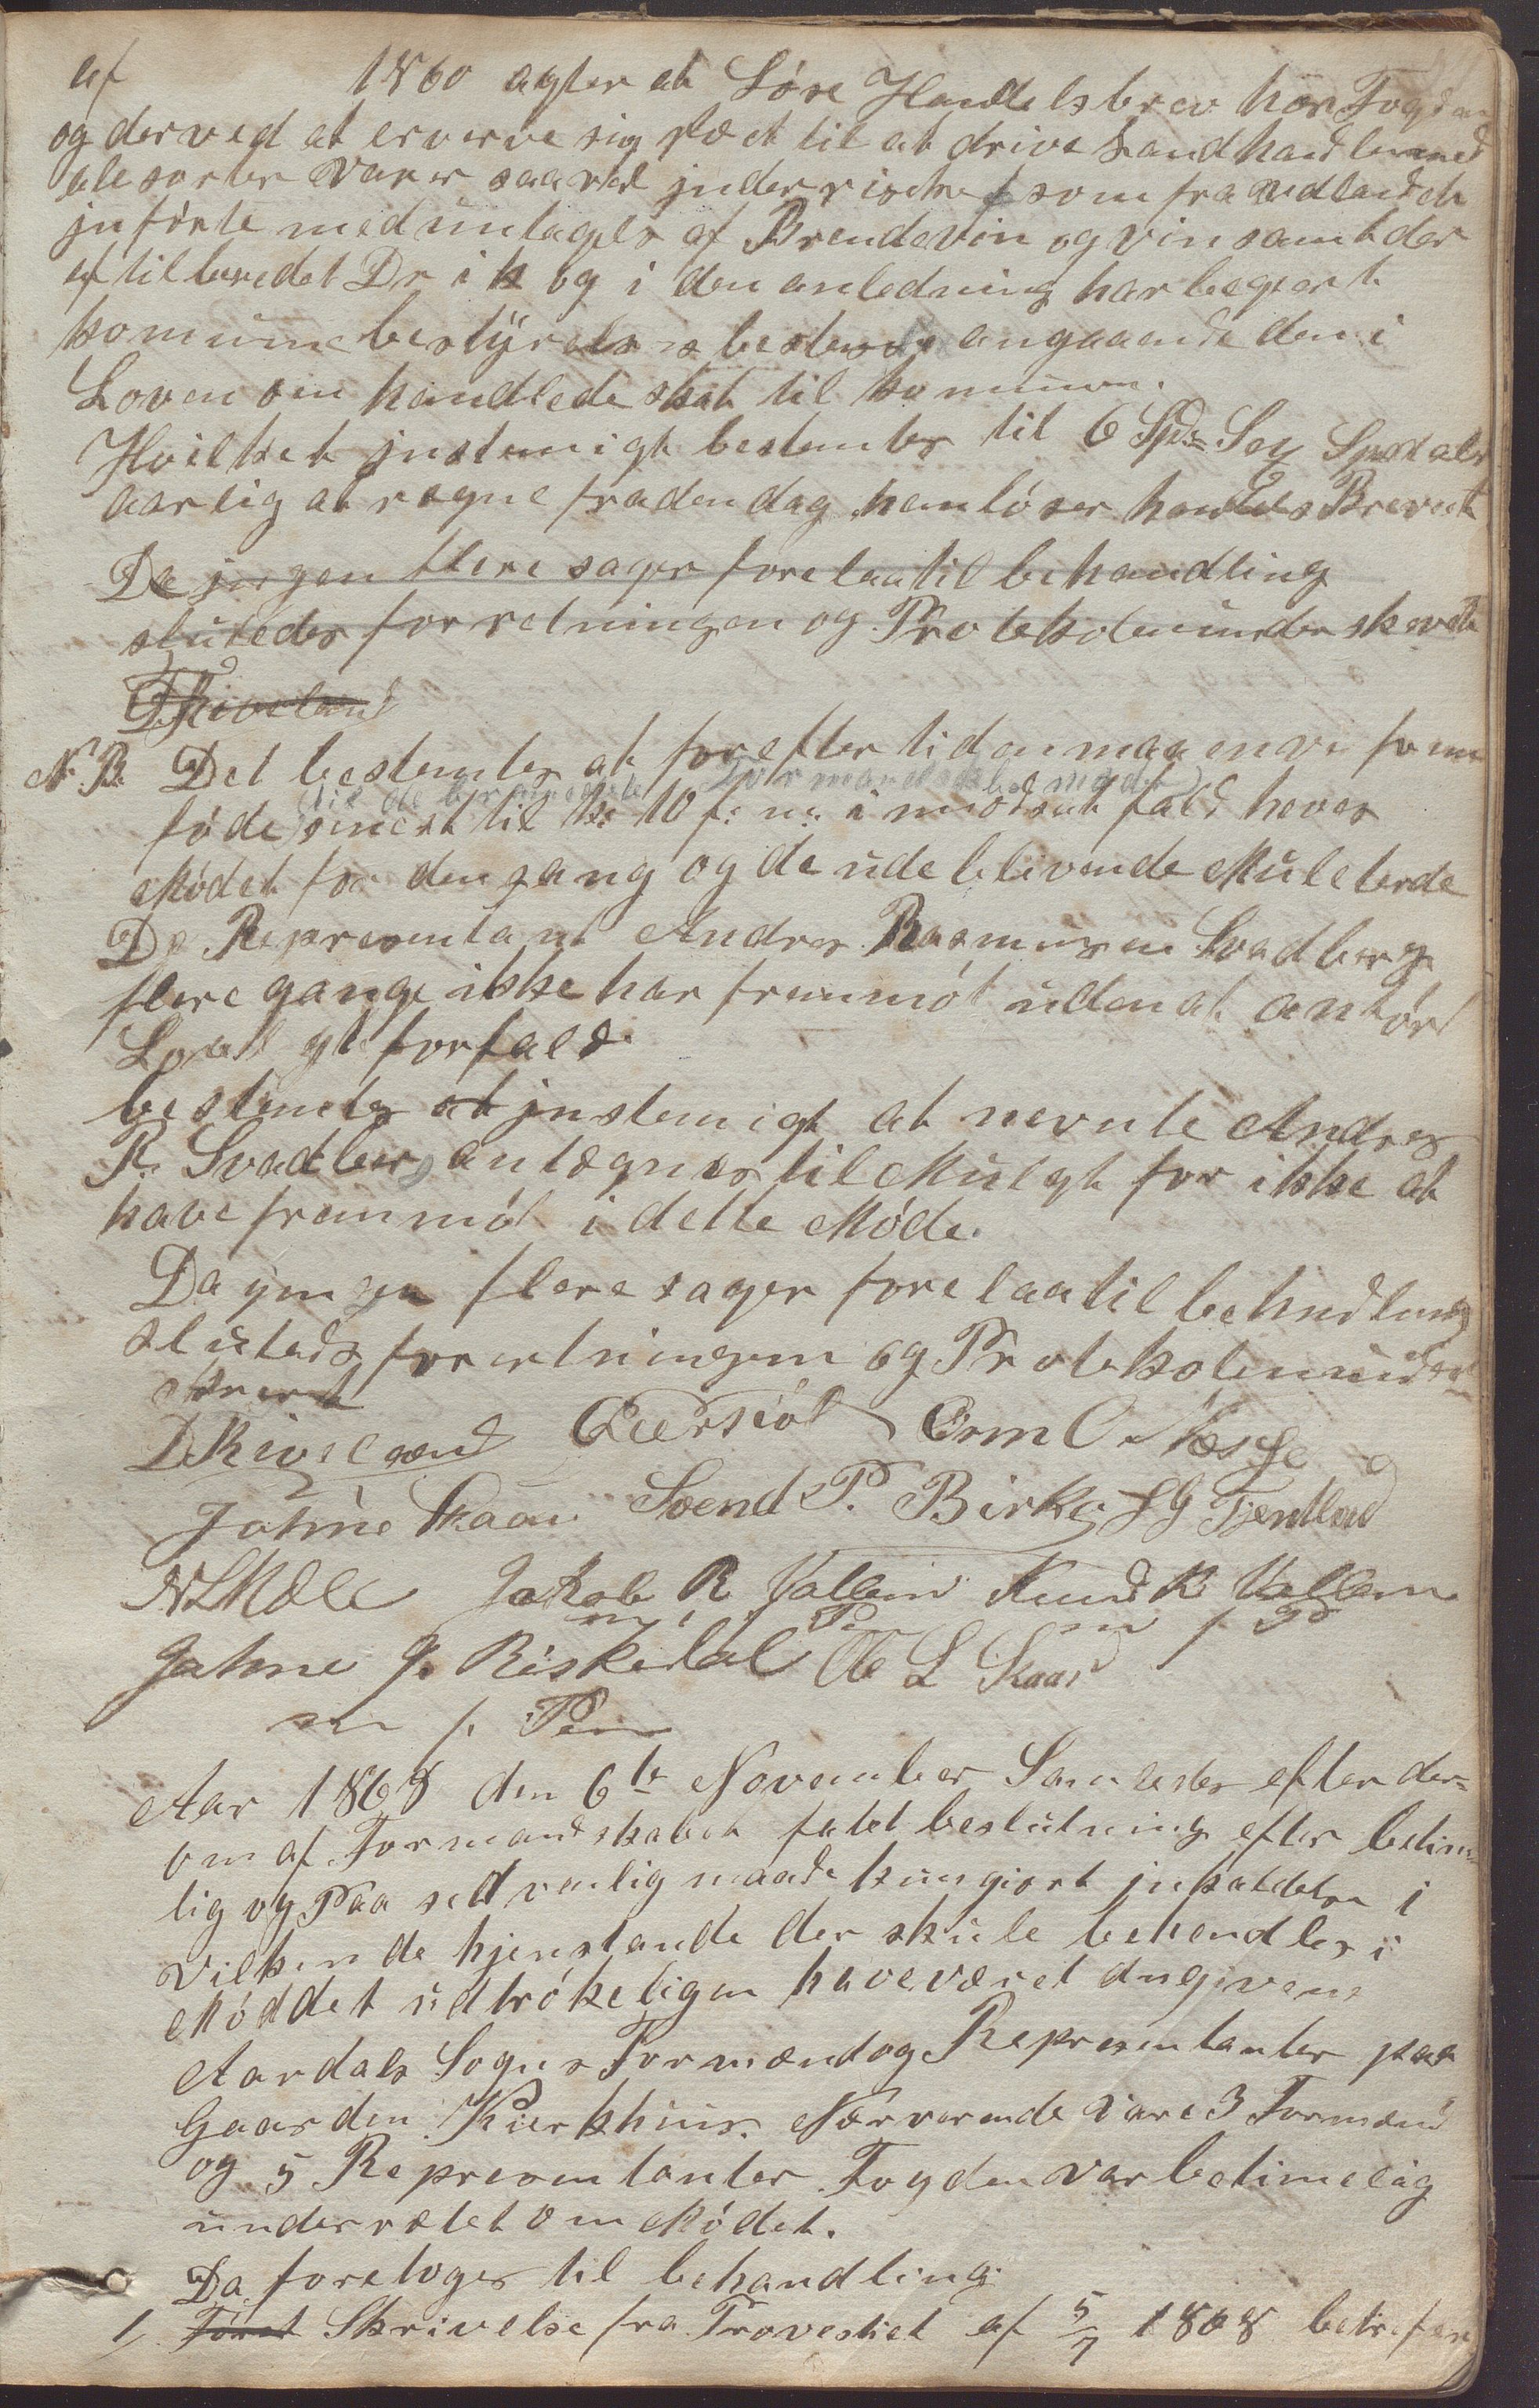 af 1860 agter at Löse Handelsbrev hos Fogden
og derved at erverve sig Ræt til at drive Landhandlermed
ale sorter Varer saavel jnderriske som fra udlandet
jnförte med untagels af Brendevin og vin samt der
af tilberedet Drik og i den anledning har begjert
komunebestÿrelses bestemelse angaaende den i
Loven om handlede skat til komunen.
Hvilket jnstemigt bestemtes til 6 Spd: Sex Spesidaler
aarlig at regne fra den dag han löser handels Brevet
Da jngen flere sager fore laa til behandling
slutedes forretningen og Protekolen underskrevet
D Riveland
N.B. Det bestemtes at for efter tiden maa enver frem
(til de berammede Formandskabsmöder)
föde sinest til k: 10 f: m: i modsat fald heves
Mödet for den gang og de udeblivende Mulcterde
Da Representant Andres Rasmusen Svadberg
flere gange ikke har fremmöt uden at anförd
Lovligt forfald
bestemtes at jnstemigt at nevnte Andres
R. Svadberg antægnes til Mulgt for ikke at
have fremmöt i dette Möde.
Da jngen flere sager fore laa til behndling
slutedes forretningen og Protekolen under
skrevet
D Riveland Qversiöt Orm O. Næsse
Johne Skaar Svend P. Birkj S G Tjentland
N L Mæle Jakob R Vallem Knud R Vallem
m. f. P. m f. P
Johne J. Riskedal Ole L Skaar
m f. Pen
Aar 1868 den 6te November Samledes efter der-
om af Formandskabet fatet beslutning efter betime-
lig og Paa sedvanlig maade kungjort jnkaldelse i
vilken de hjenstande der skule behandles i
Möddet udtrökeligen have været angivene
Aardals Sogns Formænd og Representanter paa
Gaarden Kirkhus. Nærværende vare 3 Formænd
og 5 Representanter Fogden var betimelig
underrætet om Mödet.
Da foretoges til behandling
1/ Först Skrivelse fra Provestiet af 5/7 1868 betrefen